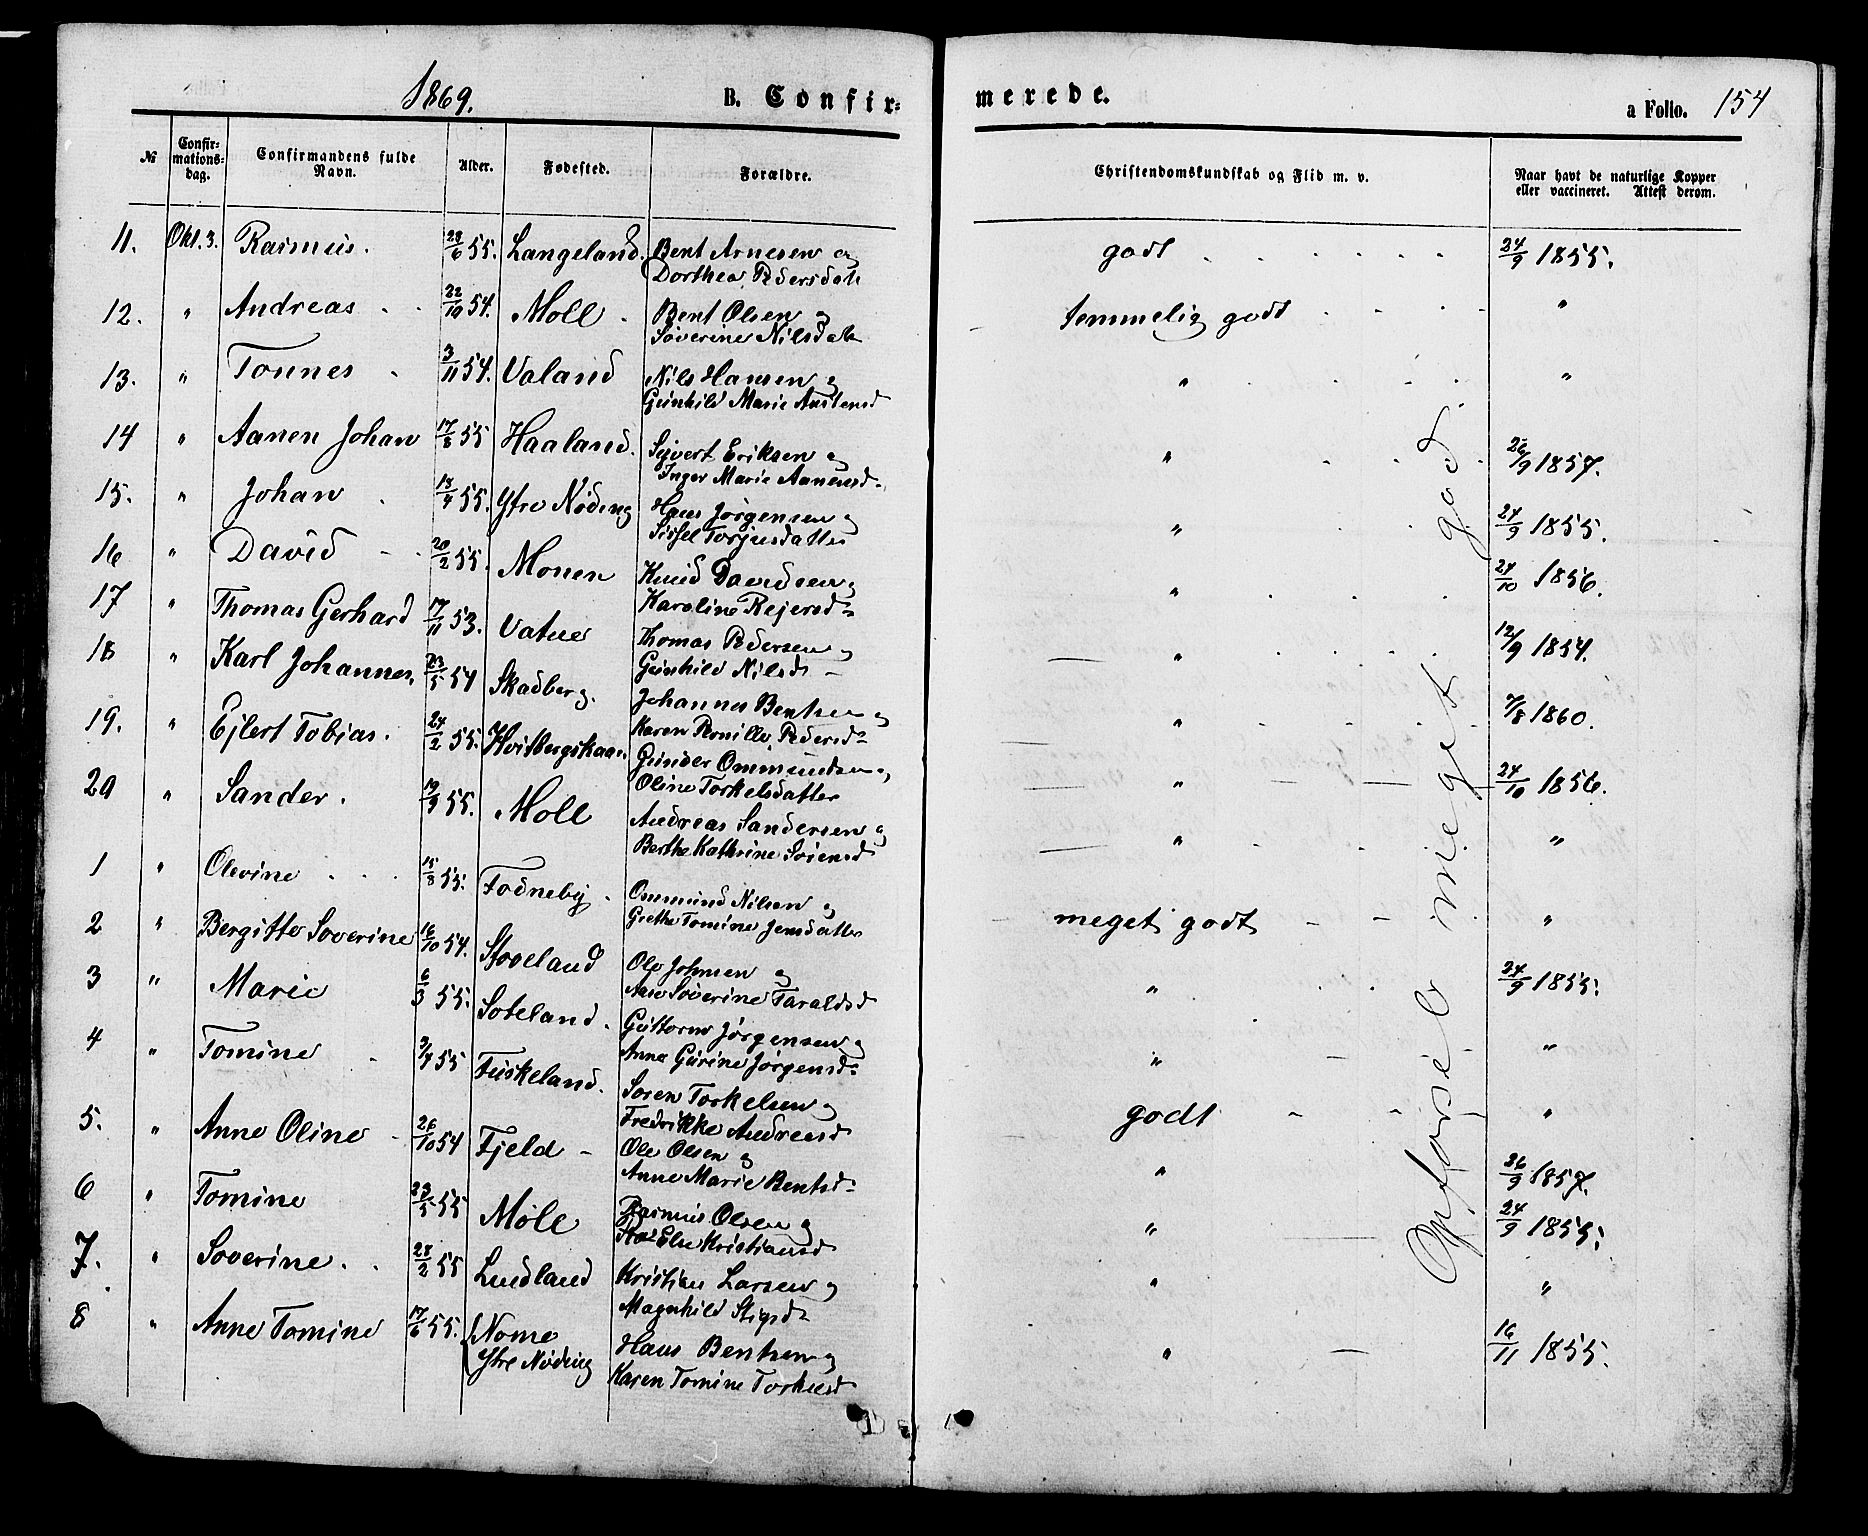 1869.
B. Confir-
merede.
a Folio. 154
№
Confir-
mations-
dag.
Confirmandens fulde
Navn.
Alder.
Fødested.
Forældre.
Christendomskundskab og Flid m. v.
Naar havt de naturlige Kopper
eller vaccineret. Attest derom.
11. Okt. 3. Rasmus. 28/6 55. Langeland. Bent Arnesen og
Dorthea Pedersdatt godt 24/9 1855.
12. " Andreas 22/10 54. Moll. Bent Olsen og
Søverine Nilsdatt temmelig godt "
13. " Tønnes 3/11 54. Valand Nils Hansen og
Gunhild Marie Austensd " "
14 " Aanen Johan 17/8 55 Haaland. Sivert Eriksen og
Inger Marie Aanensd " 26/9 1857.
15. " Johan 18/4 55. Ytre Nøding Hans Jørgensen og
Sissel Torjusdatter " 24/9 1855.
16 " David 20/2 55. Monen Knud Davidsen og
Karoline Rejersd " 24/10 1856.
17 " Thomas Gerhard 17/11 53. Vatne Thomas Pedersen og
Gunhild Nilsd " 12/9 1854.
18 " Karl Johannes. 23/5 54 Skadberg. Johannes Bentsen og
Karen Pernille Pedersd " 7/8 1860.
19. " Ejlert Tobias. 24/2 55. Hvidbergskaar. Gunder Ommundsen og
Oline Torkelsdatter " 24/10 1856.
20 " Sander. 19/9 55. Moll Andreas Sandersen og
Berthe Kathrine Sørensd " "
1 " Olevine 15/8 55. Fodneby. Ommund Nilsen og
Grethe Tomine Jensdatter meget godt "
2 " Bergitte Søverine 16/10 54. Støveland Ole Johnsen og
Aase Søverine Taraldsd " 24/9 1855.
3 " Marie 6/3 55. Soteland. Guttorm Jørgensen og
Anne Gurine Jørgensd " "
4 " Tomine 3/4 55 Fuskeland. Søren Torkelsen og
Fredrikke Andreasd godt "
5. " Anne Oline 26/10 54 Fjeld Ole Olsen og
Anne Marie Bentsd " 26/9 1857.
6 " Tomine 23/5 55 Møll Rasmus Olsen og
Else Kristiansd " 24/9 1855.
7. " Søverine. 28/2 55 Lindland Kristian Larsen og
Magnhild Stigsd " "
8 " Anne Tomine 17/6 55. Nome
Ytre Nøding Hans Bentsen og
Karen Tomine Torkelsd " 16/11 1855.
Opførsel meget god.